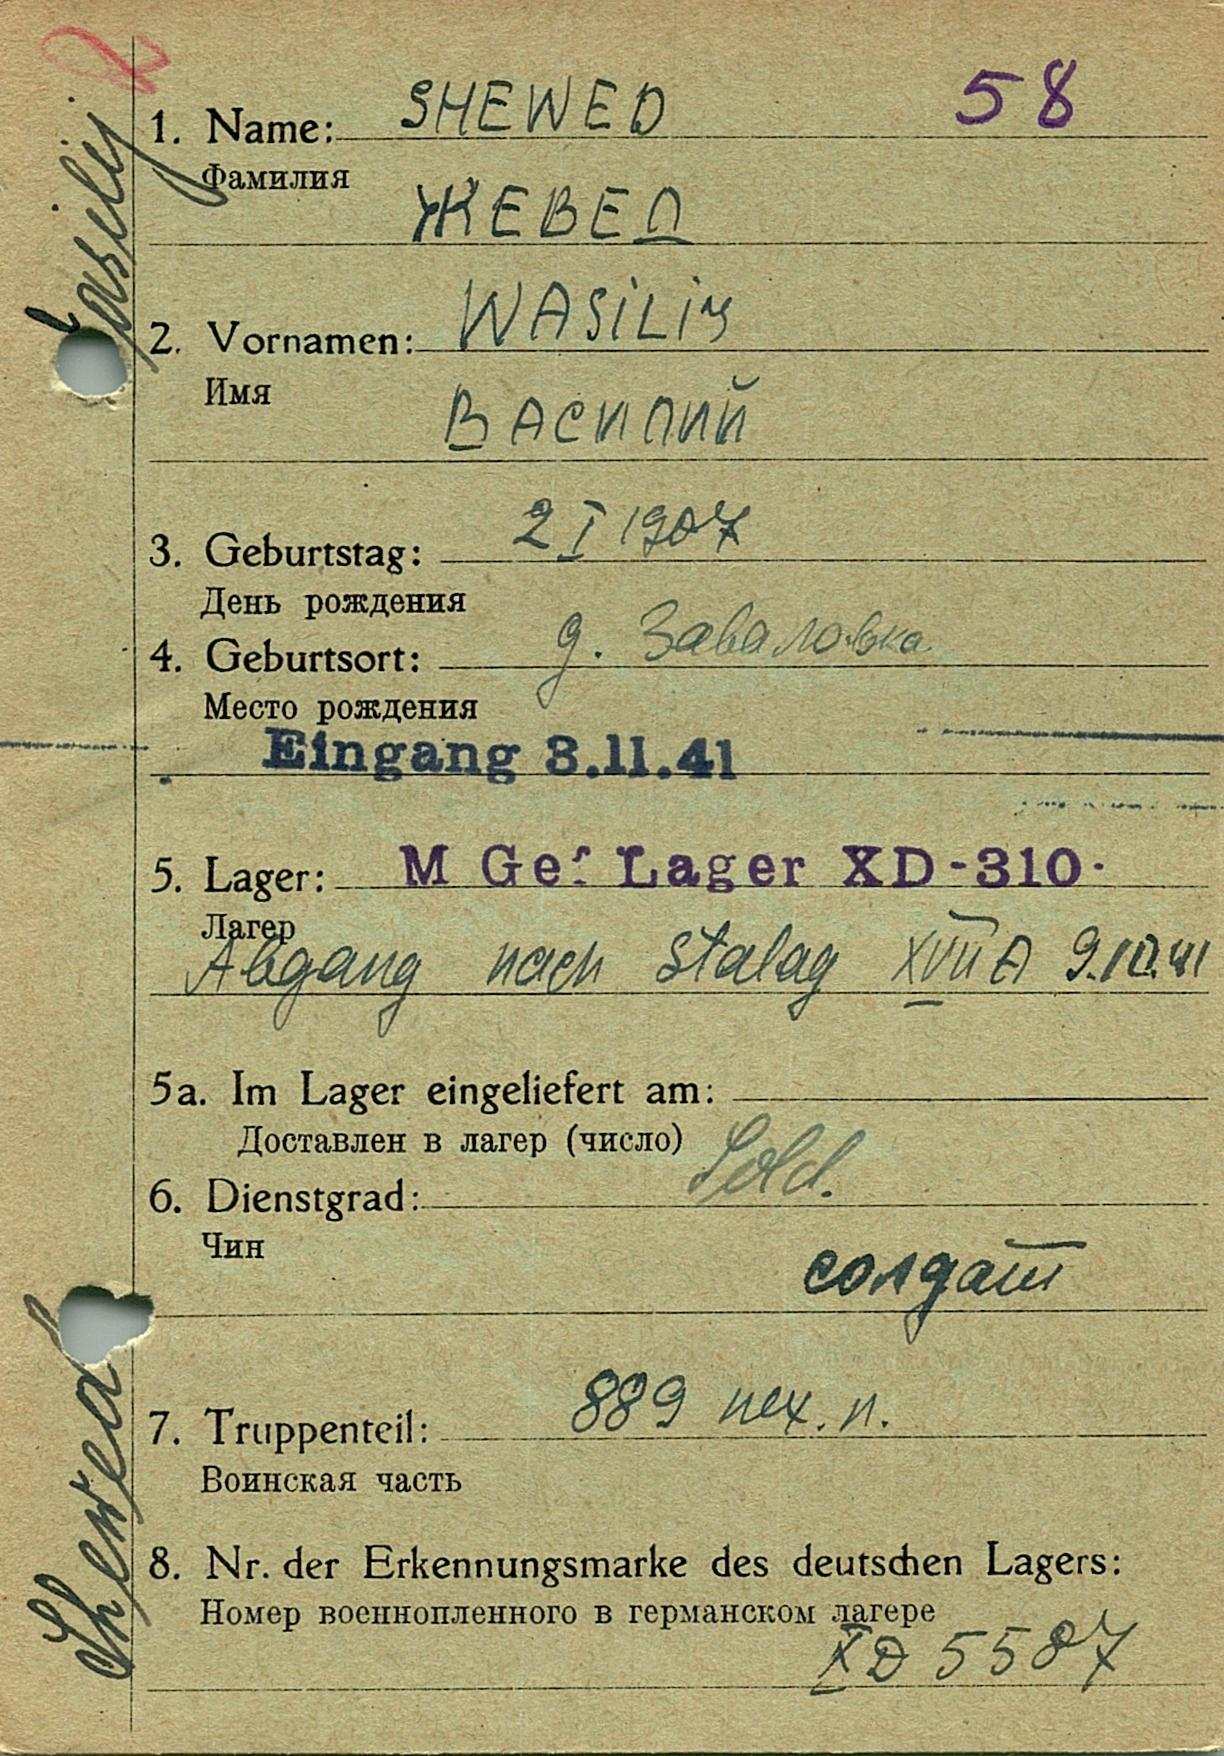 58
1. Name: SHEWED
Фамилия
ЖЕВЕД
2. Vornamen: WASiLiy
Имя
ВАСИЛИЙ
3. Geburtstag: 2 I 1907
День рождения
4. Geburtsort: д. Заваловка
Место рождения
Eingang 3.11.41
5. Lager: M Gef Lager XD-310.
Лагер
Abgang nach Stalag XVII A 9.10.41
5a. Im Lager eingeliefert am:
Доставлен в лагер (число)
6. Dienstgrad: Sold.
Чин
солдат
7. Truppenteil: 889 пех. п.
Воинская часть
8. Nr. der Erkennungsmarke des deutschen Lagers:
Номер военнопленного в германском лагере
XD 5587
Shewed Wasilij